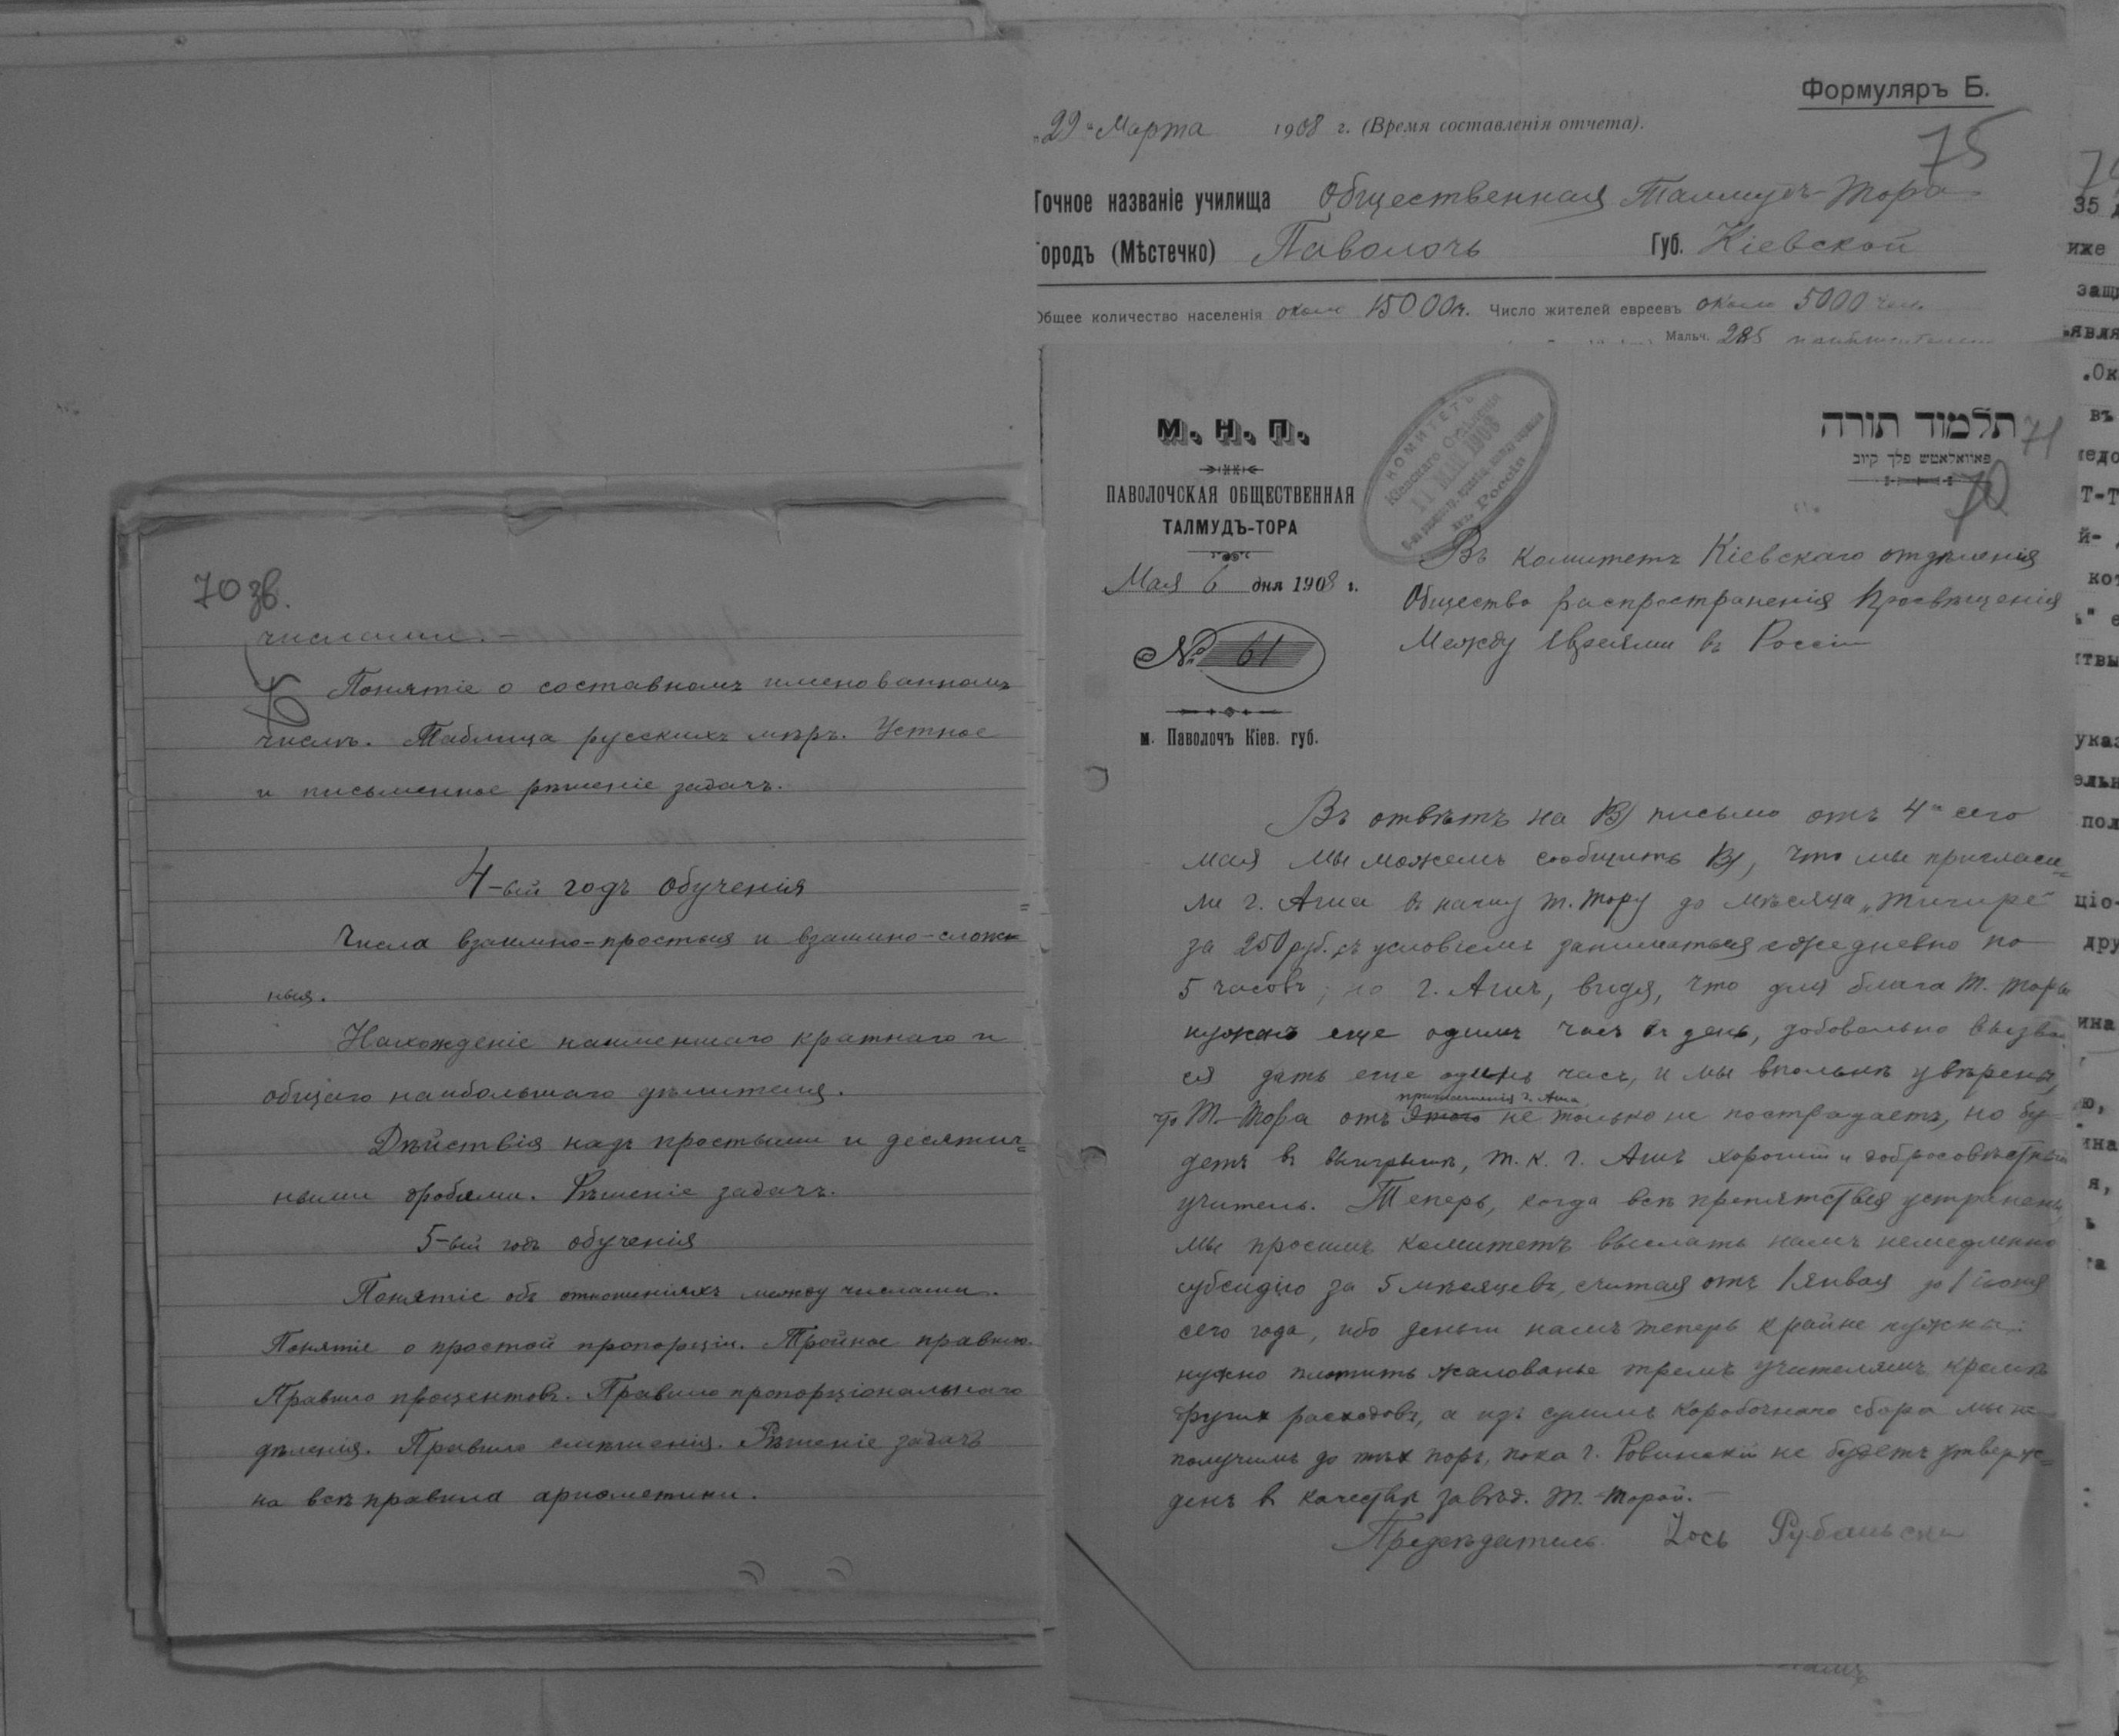 70 зв.
числами. —
Понятіе о составномъ именованномъ
числѣ. Таблица русскихъ мѣръ. Устное
и письменное рѣшеніе задачъ.
4-ый годъ обученія
Числа взаимно-простыя и взаимно-слож=
ныя.
Нахожденіе наименшаго кратнаго и
общаго наибольшаго дѣлителя.
Дѣйствія надъ простыми и десятич=
ными дробями. Рѣшеніе задачъ.
5-ый годъ обученія
Понятіе объ отношеніяхъ между числами.
Понятіе о простой пропорціи. Тройное правило.
Правило процентовъ. Правило пропорціональнаго
дѣленія. Правило смѣшенія. Рѣшеніе задачъ
на всѣ правила ариѳметики.
Формуляръ Б.
"22" Марта 1908 г. (Время составленія отчета).
75
Точное названіе училища Общественная Талмудъ-Тора
Городъ (Мѣстечко) Паволочь Губ. Кіевской
Общее количество населенія около 15000 ч. Число жителей евреевъ около 5000 чел.
Мальч. 285
М. Н. П.
ПАВОЛОЧСКАЯ ОБЩЕСТВЕННАЯ
ТАЛМУДЪ-ТОРА
Мая 6 дня 1908 г.
№ 61
м. Паволочъ Кіев. губ.
КОМИТЕТЪ
Кіевскаго Отдѣленія
11 МАЙ 1908
въ Россіи
תלמוד תורה
פאוואלאטש פלך קיוב
71
70
Въ комитетъ Кіевскаго отдѣленія
Общество распространенія Просвѣщенія
Между Евреями въ Россіи
Въ отвѣтъ на В/ письмо отъ 4го сего
мая мы можемъ сообщить В/, что мы пригласи=
ли г. Аша въ нашу Т. Тору до мѣсяца „Тишре"
за 250 руб. съ условіемъ заниматься ежедневно по
5 часовъ; но г. Ашъ, видя, что для блага Т. Торы
нуженъ еще одинъ часъ въ день, добовольно вызвал
ся дать еще одинъ часъ, и мы вполнѣ увѣрены,
приглашенія г. Аша
что Т.-Тора отъ этого не только не пострадаетъ, но бу-
детъ въ выигрышѣ, т. к. г. Ашъ хорошій и добросовѣстный
учитель. Теперь, когда всѣ препятствія устранены,
мы просимъ комитетъ выслать намъ немедленно
субсидію за 5 мѣсяцевъ, считая отъ 1 января до 1 іюня
сего года, ибо деньги намъ теперь крайне нужны:
нужно платить жалованье тремъ учителямъ кромѣ
другихъ расходовъ, а изъ суммъ коробочнаго сбора мы не
получимъ до тѣхъ поръ, пока г. Ровинскій не будетъ утверж=
денъ въ качествѣ завѣд. Т.-Торой. —
Предсѣдатель Іось